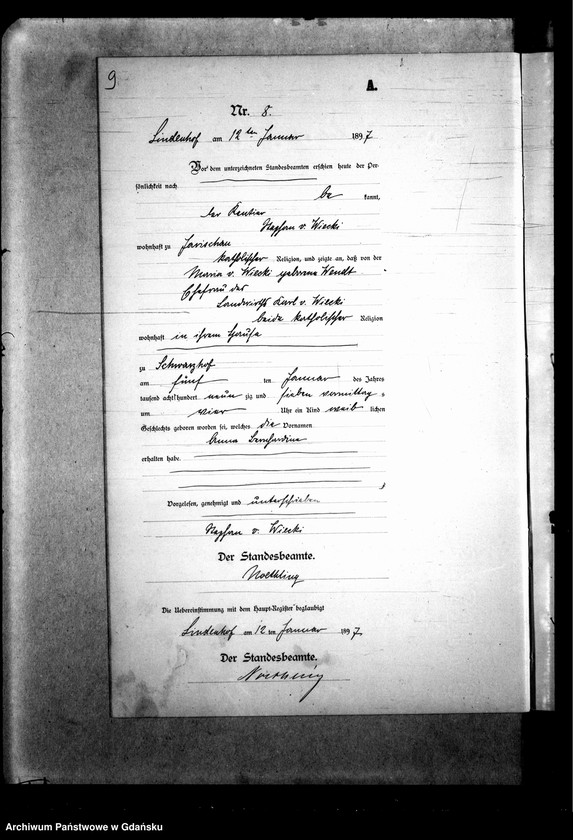 9
A.
Nr. 8.
Lindenhof am 12ten Januar 1897
Vor dem unterzeichneten Standesbeamten erschien heute der Per-
sönlichkeit nach
be kannt,
der Rentier
Stephan v. Wiecki
wohnhaft zu Jarischau
katholischer Religion, und zeigte an, daß von der
Maria v. Wiecki geborene Wendt
Ehefrau des
Landwirths Karl v. Wiecki
beide katholischer Religion
wohnhaft in ihrem Hause
zu Schwarzhof
am fünf ten Januar des Jahres
tausend achthundert neun zig und sieben vormittag s
um vier Uhr ein Kind weib lichen
Geschlechts geboren worden sei, welches die Vornamen
Anna Bernhardine
erhalten habe.
Vorgelesen, genehmigt und unterschrieben
Stephan v. Wiecki
Der Standesbeamte.
Noethling
Die Uebereinstimmung mit dem Haupt-Register beglaubigt
Lindenhof am 12 ten Januar 1897
Der Standesbeamte.
Noethling
Archiwum Państwowe w Gdańsku